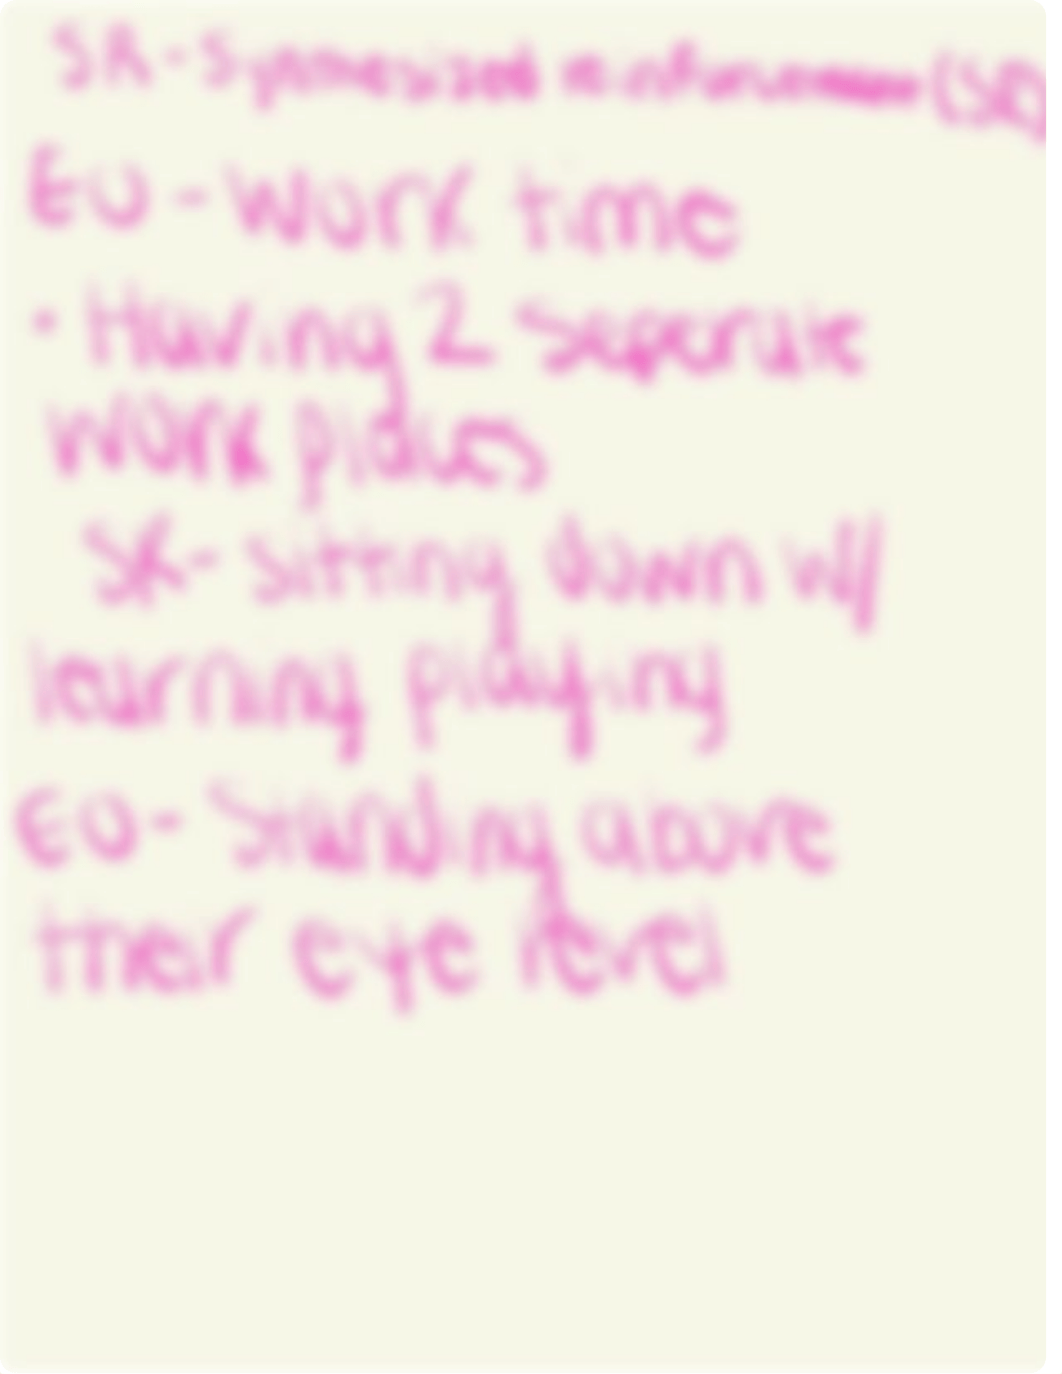 SR - Synthesized reinforcement (SD
EO - Work time
• Having 2 seperate
work places
SR - sitting down w/
learning playing
EO - Standing above
their eye level